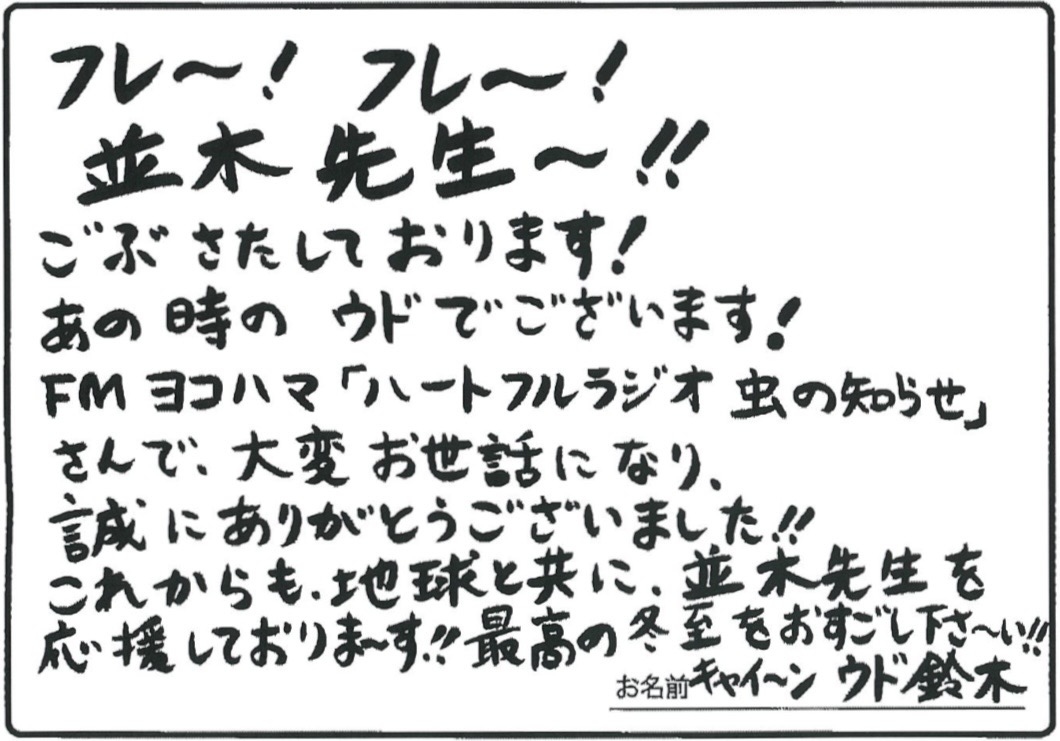 フレ～！ フレ～！
並木先生～!!
ごぶさたしております！
あの時の ウドでございます！
FMヨコハマ「ハートフルラジオ 虫の知らせ」
さんで、大変お世話になり、
誠にありがとうございました!!
これからも、地球と共に、並木先生を
応援しておりま～す!! 最高の冬至をおすごし下さ～い!!
お名前 キャイ～ン ウド鈴木